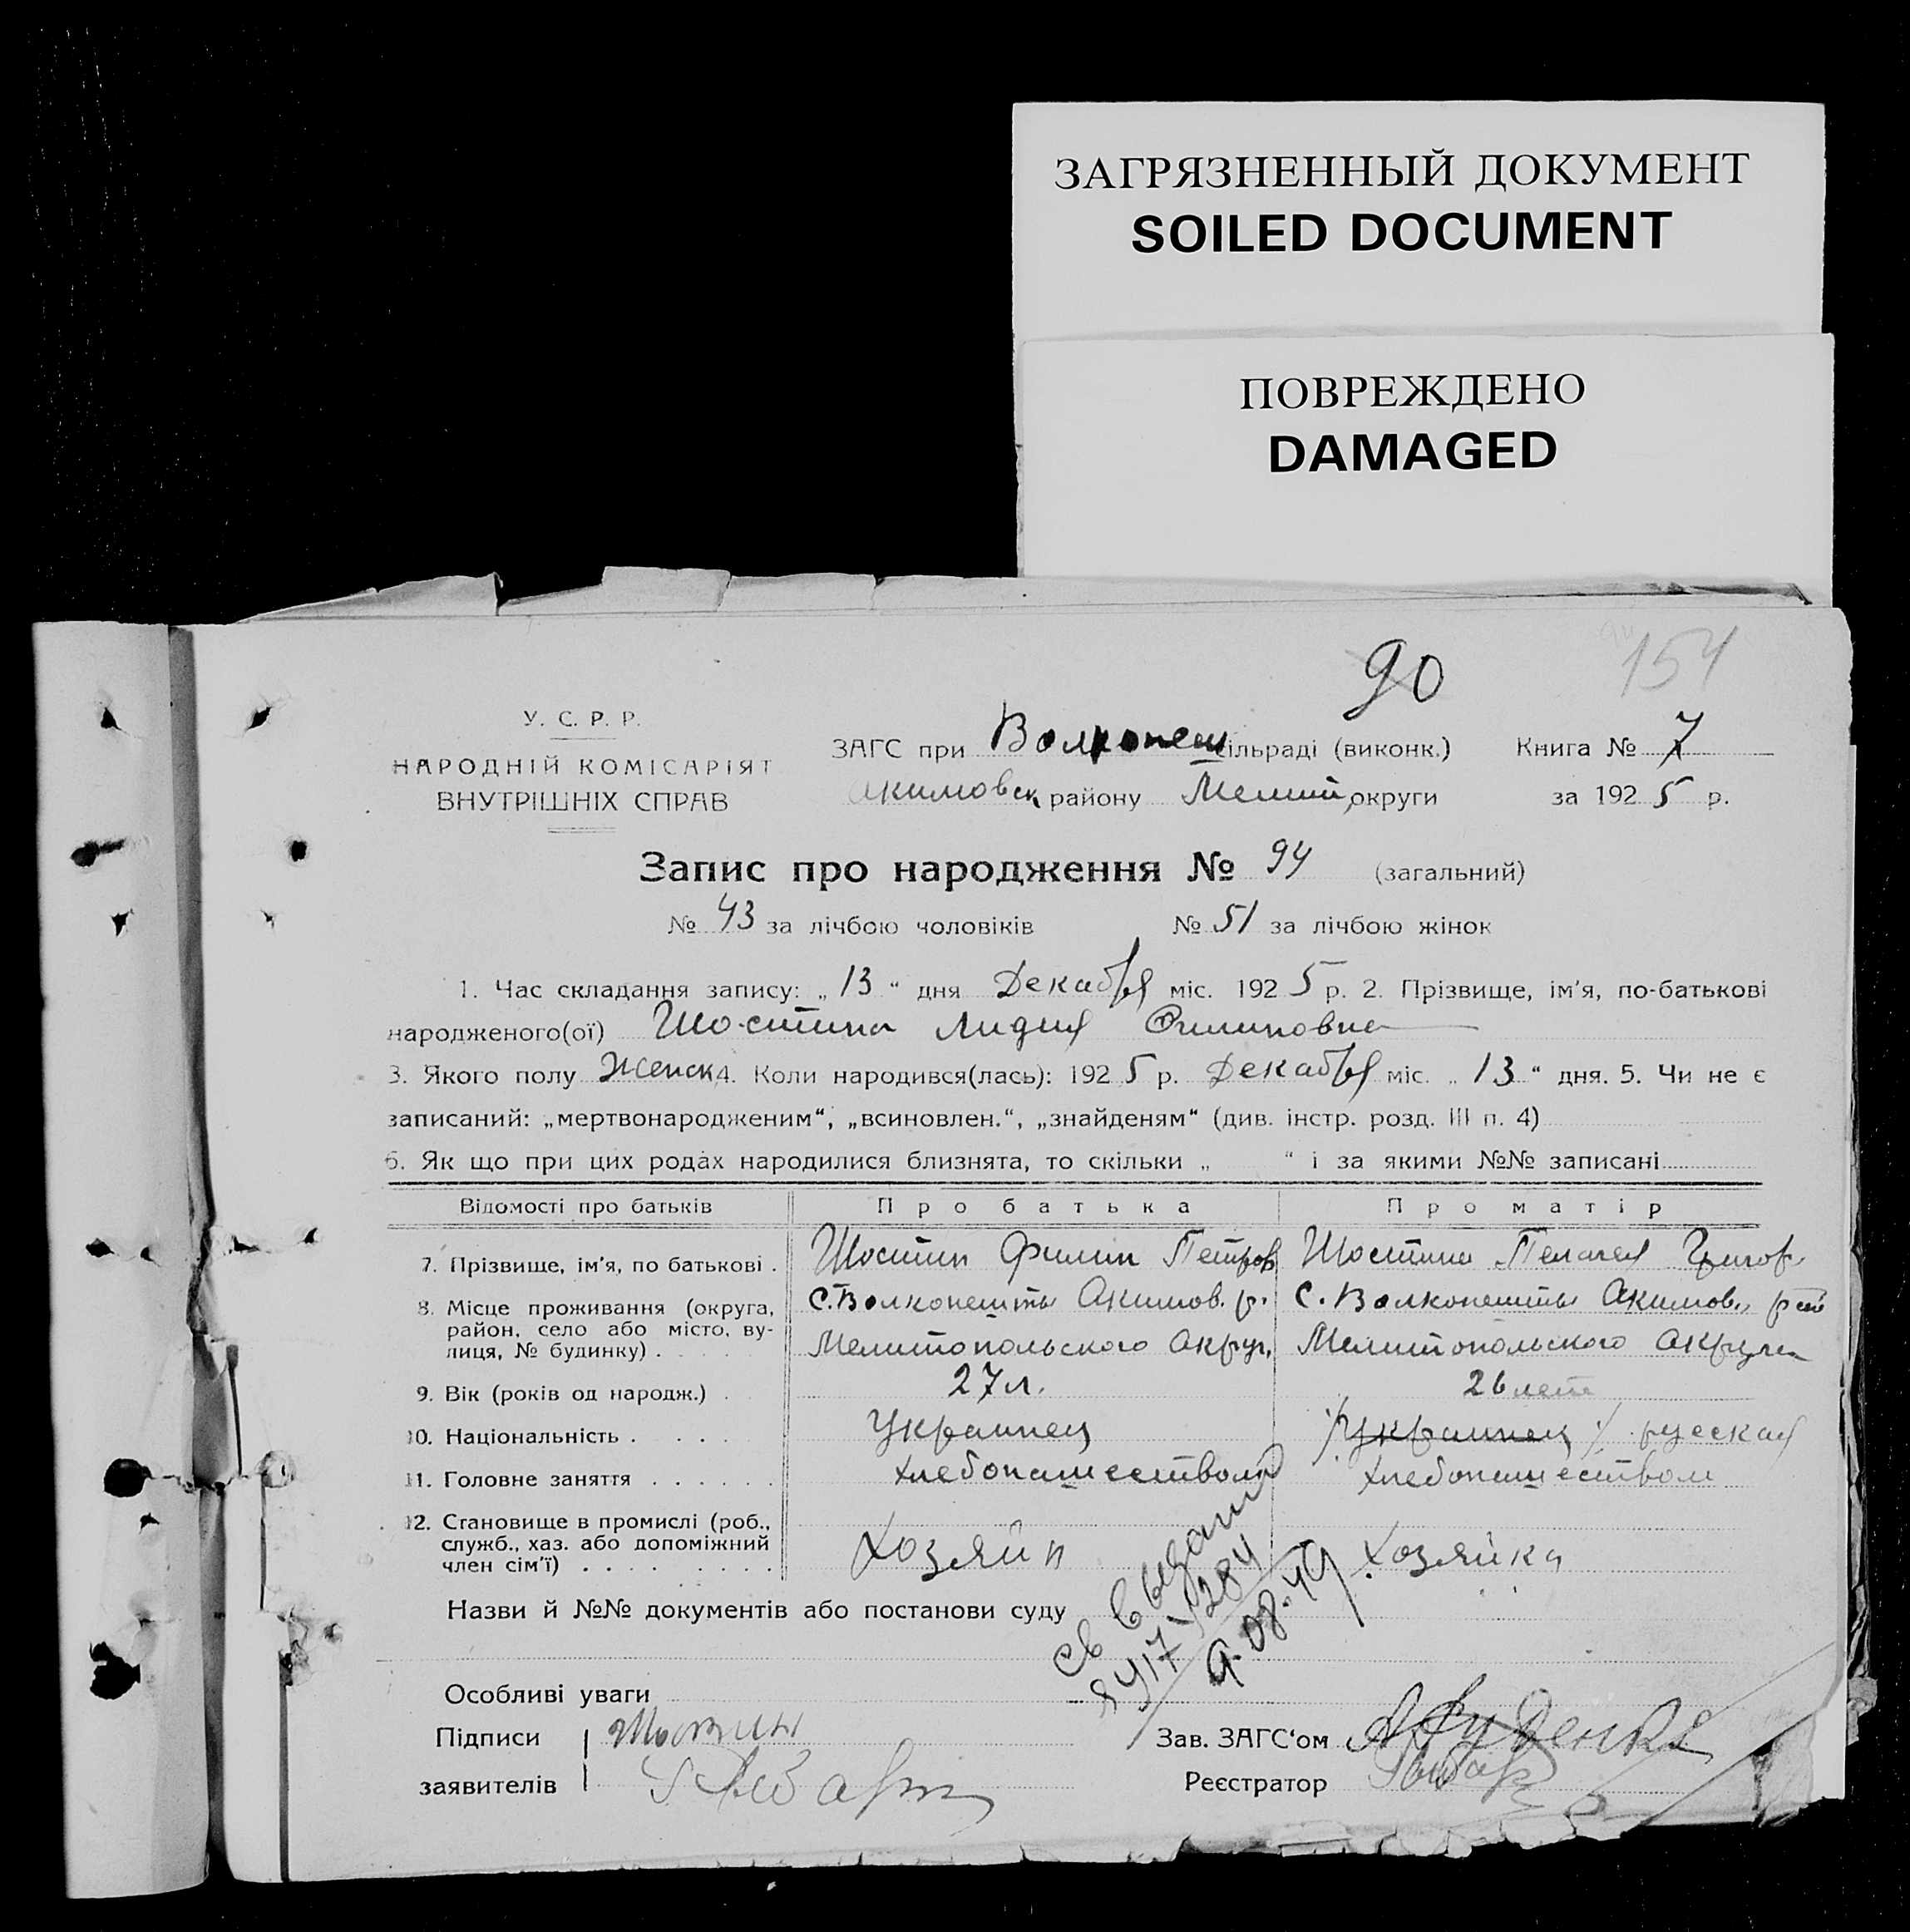 ЗАГРЯЗНЕННЫЙ ДОКУМЕНТ
SOILED DOCUMENT
ПОВРЕЖДЕНО
DAMAGED
90
154
У. С. Р. Р.
НАРОДНІЙ КОМІСАРІЯТ
ВНУТРІШНІХ СПРАВ
ЗАГС при Волконеш сільраді (виконк.) Книга № 7
Акимовск району Мелит. округи за 1925 р.
Запис про народження № 94 (загальний)
№ 43 за лічбою чоловіків № 51 за лічбою жінок
1. Час складання запису: „13“ дня Декабря міс. 1925 р. 2. Прізвище, ім'я, по-батькові
народженого(ої) Шостина Лидия Филиповна
3. Якого полу Женск 4. Коли народився(лась): 1925 р. Декабря міс. „13“ дня. 5. Чи не є
записаний: „мертвонародженим“, „всиновлен.“, „знайденям“ (див. інстр. розд. III п. 4)
6. Як що при цих родах народилися близнята, то скільки „ “ і за якими №№ записані
Відомості про батьків Про батька Про матір
7. Прізвище, ім'я, по батькові . Шостин Филип Петров Шостина Пелагея Григор.
8. Місце проживання (округа, район, село або місто, вулиця, № будинку) .
С. Волконешты Акимов. р. Мелитопольского Акруг.
С. Волконешты Акимов. рай Мелитопольского Акруга
9. Вік (років од народж.) . 27 л. 26 лет
10. Національність . Украинец Украинец русская
11. Головне заняття . Хлебопашеством Хлебопашеством
12. Становище в промислі (роб., служб., хаз. або допоміжний член сім'ї) .
Хозяин Хозяйка
Назви й №№ документів або постанови суду
Св выдан
9.08.49
Особливі уваги
Підписи Шостин
заявителів
Зав. ЗАГС'ом
Реєстратор